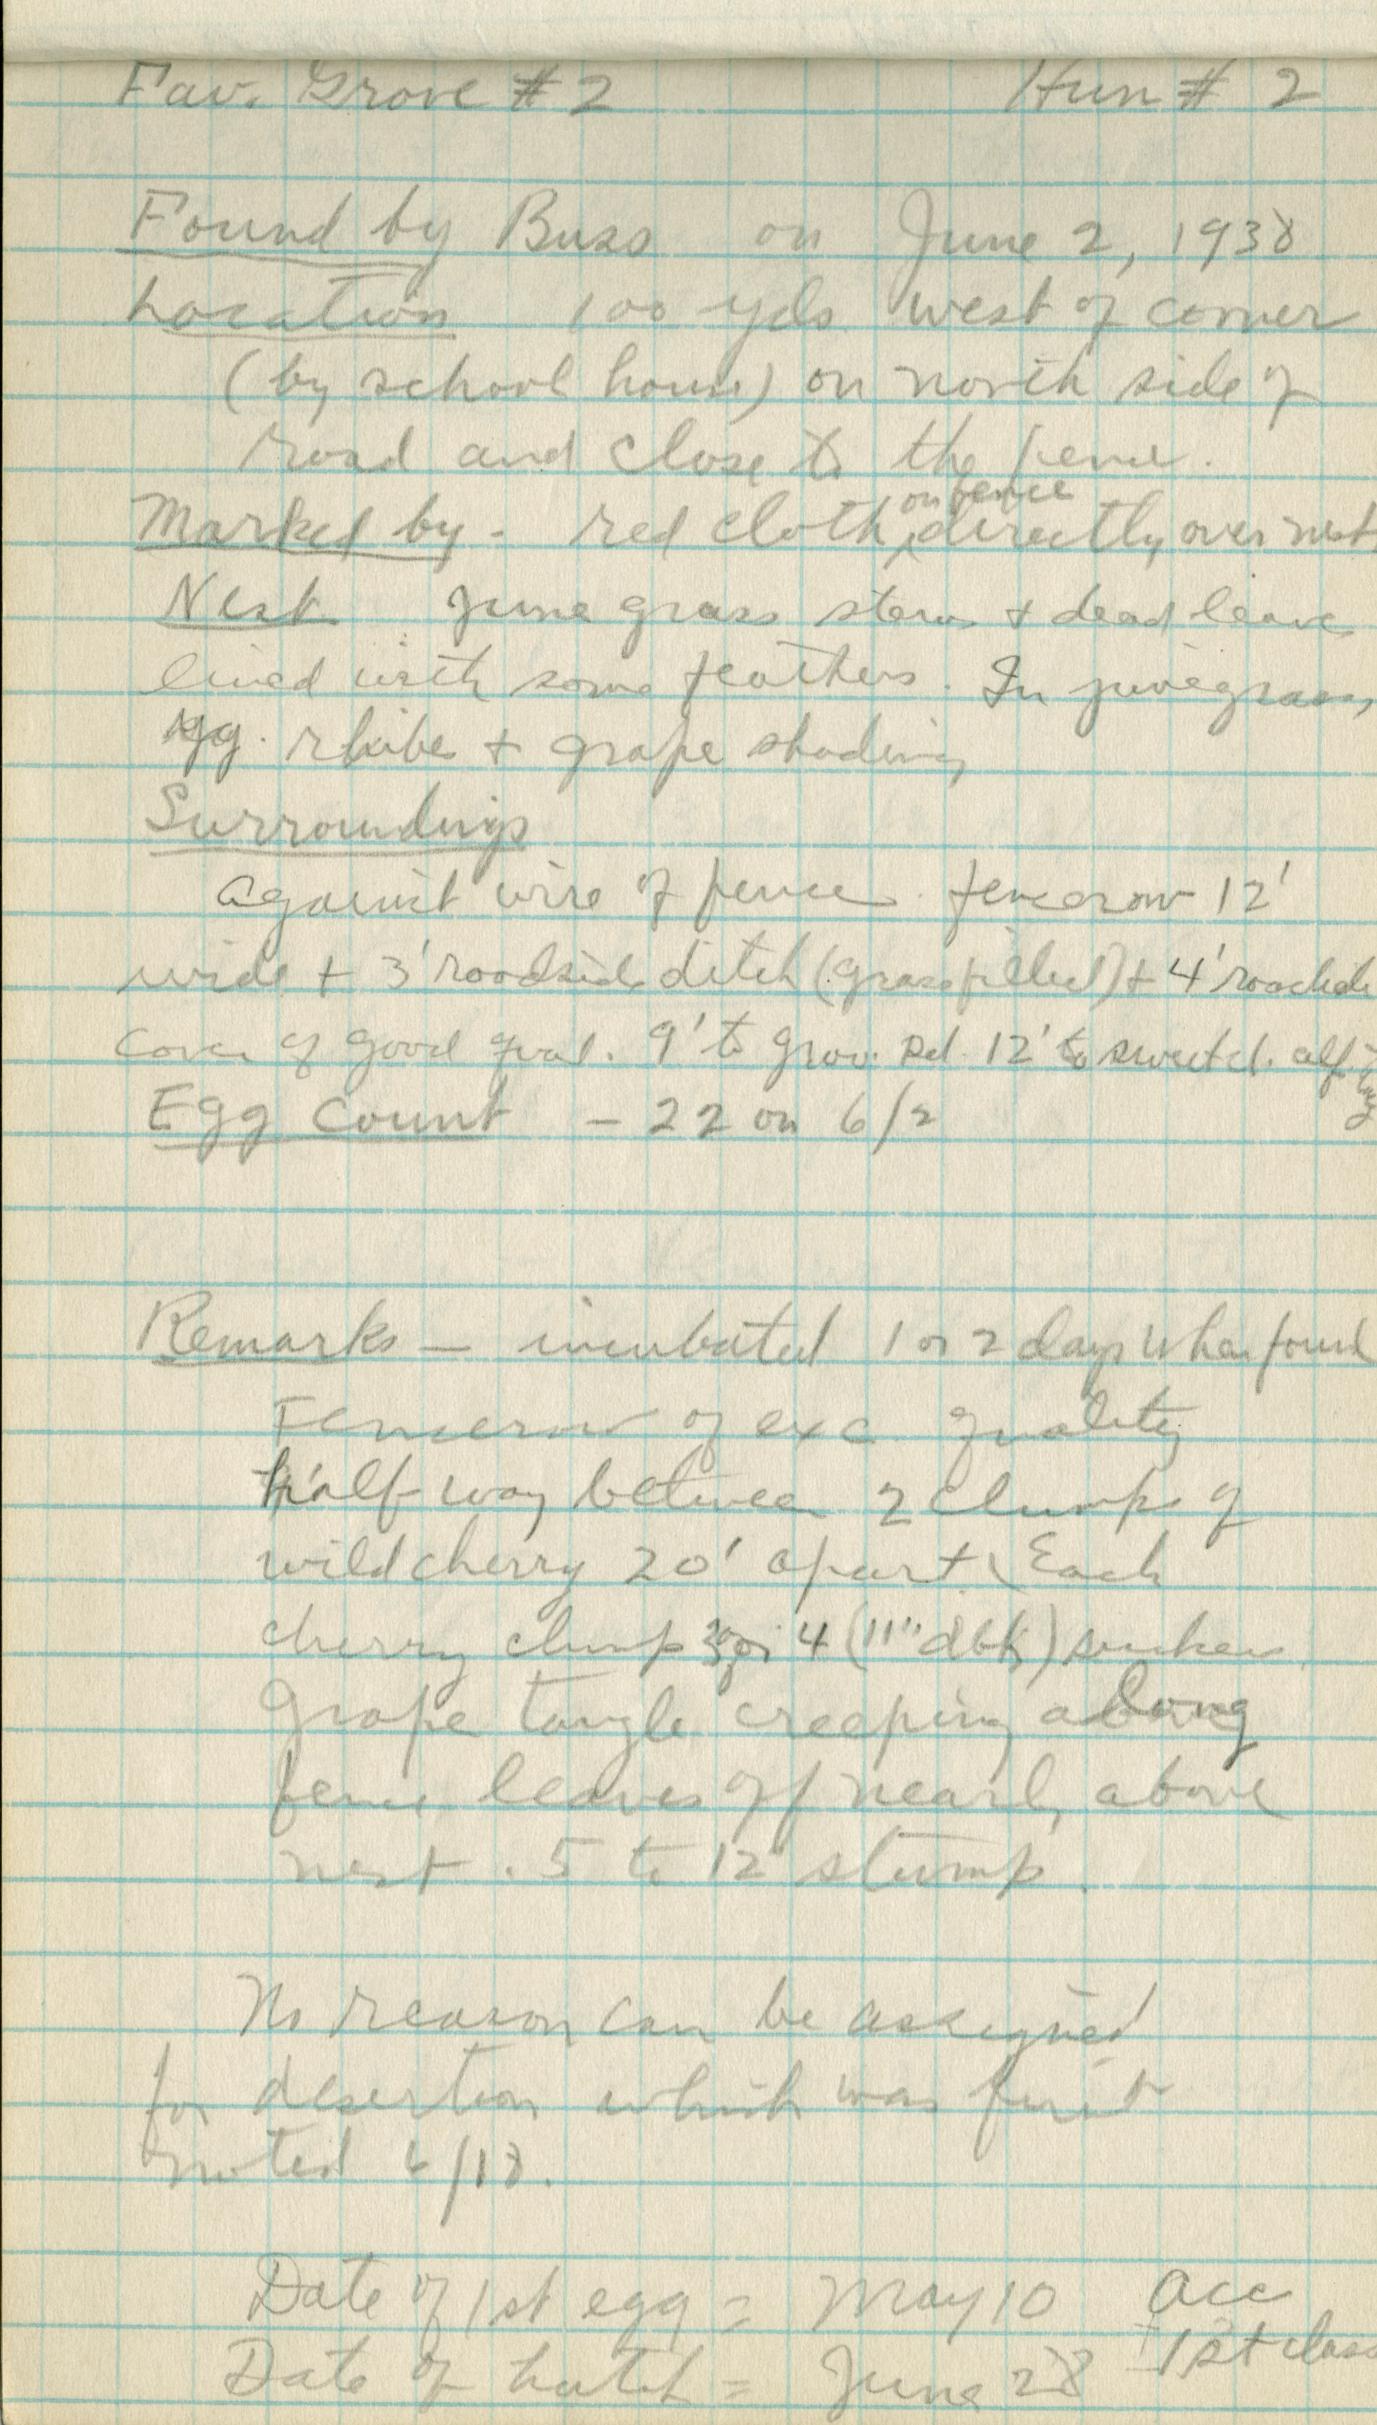 Fav. Grove #2 Hun # 2
Found by Buss on June 2, 1938
Location 100 yds west of corner
(by school house) on north side of
road and close to the fence.
on fence
Marked by - red cloth, directly over nest
Nest June grass stems + dead leaves
lined with some feathers. In junegrass,
ribes + grape shading
Surroundings
against wire of fence. fencerow 12'
wide + 3' roadside ditch (grass filled) + 4' roadside
cover of good qual. 9' to grav. rd. 12' to sweet cl. alf.
Egg Count - 22 on 6/2
Remarks - incubated 1 or 2 days when found
Fencerow of exc. quality
half way between 2 clumps of
wild cherry 20' apart. Each
cherry clump 3 or 4 (11" dbh) suckers.
Grape tangle creeping along
fence leaves off nearly above
nest. 5 to 12 stump.
No reason can be assigned
for desertion which was first
noted 6/18.
Date of 1st egg = May 10 acc
Date of hatch = June 28 1st class